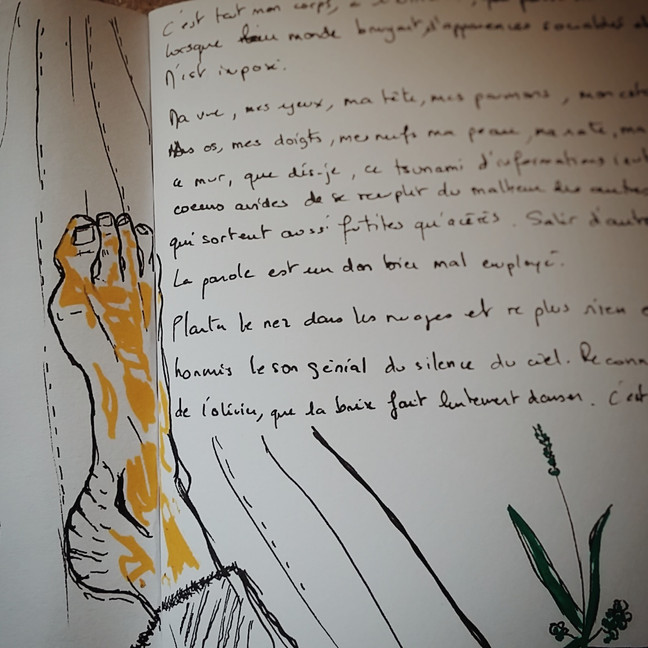 C'est tout mon corps, a
lorsque monde bruyant, d'apparences sociables et
N'est imposé.
Ma vue, mes yeux, ma tête, mes poumons, mon
Mes os, mes doigts, mes nerfs ma peau, ma rate, ma
ce mur, que dis-je, ce tsunami d'informations
avides de se remplir du malheur des autres
qui sortent aussi futiles qu'acérés. Salir d'autre
La parole est un don bien mal employé.
Planter le nez dans les nuages et ne plus rien
hormis le son génial du silence du ciel. Reconn
de l'olivier, que la brise fait lentement danser. C'est